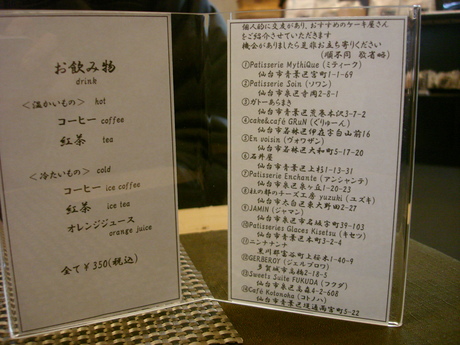 お飲み物
drink
<温かいもの> hot
コーヒー coffee
紅茶 tea
<冷たいもの> cold
コーヒー ice coffee
紅茶 ice tea
オレンジジュース
orange juice
全て¥350(税込)
個人的に交友があり、おすすめのケーキ屋さん
をご紹介させていただきます
機会がありましたら是非お立ち寄りください
(順不同 敬省略)
①Patisserie MythiQue (ミティーク)
仙台市青葉区宮町1-1-69
②Patisserie Soin (ソワン)
仙台市泉区寺岡2-8-1
③ガトーあらまき
仙台市青葉区荒巻本沢3-7-2
④cake&café GRuN (ぐりゅーん)
仙台市若林区伊在字台山前16
⑤En voisin (ヴォワザン)
仙台市若林区大和町5-17-20
⑥石井屋
仙台市青葉区上杉1-13-31
⑦Patisserie Enchante (アンシャンテ)
仙台市泉区泉ヶ丘1-20-23
⑧杜の都のチーズ工房 yuzuki (ユズキ)
仙台市太白区東大野田2-27
⑨JAMIN (ジャマン)
仙台市泉区市名坂字御39-103
⑩Patisseries Glaces Kisetsu (キセツ)
仙台市青葉区本町3-2-4
⑪ニンナナンナ
黒川郡富谷町上桜木1-40-9
⑫GERBEROY (ジェルブロワ)
多賀城市高橋2-18-5
⑬Sweets Suite FUKUDA (フクダ)
仙台市泉区高森4-2-608
⑭Café Kotonoha (コトノハ)
仙台市青葉区堤通雨宮町5-22